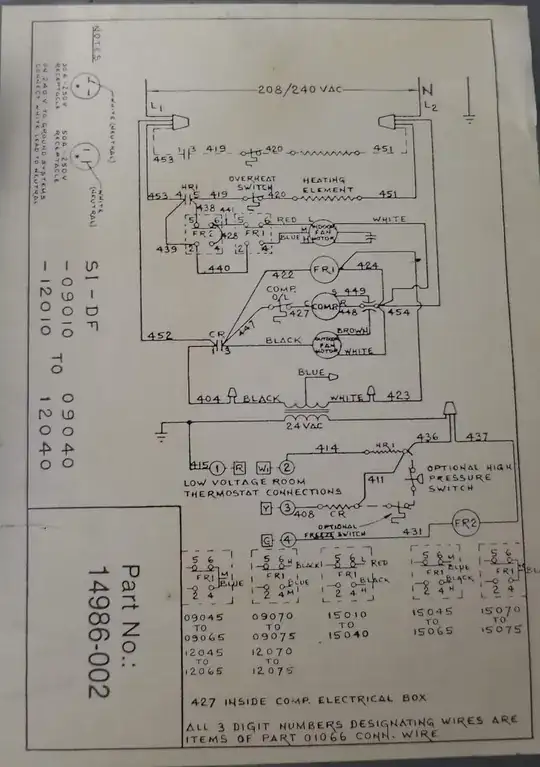 NOTES
WHITE (NEUTRAL)
30A-250V
RECEPTACLE
WHITE
(NEUTRAL)
50A-250V
RECEPTACLE
ON 240 V TO GROUND SYSTEMS
CONNECT WHITE LEAD TO NEUTRAL
SI-DF
-09010 TO 09040
-12010 12040
Part No.:
14986-002
208/240 VAC
N
L1
L2
453 3 419 420 451
OVERHEAT
SWITCH
HEATING
ELEMENT
HR1
453 4 5 419 420 451
438 441
5 6 5 6 RED L WHITE
FR2 428 FR1 BLUE M INDOOR
FAN
MOTOR
2 4 2 4
439
440
422 FR1 424
COMP.
O/L
S 449
447 427 C COMP R 448 454
452
CR
3
BLACK
BROWN
OUTDOOR
FAN
MOTOR
WHITE
BLUE
404 BLACK WHITE 423
24 VAC
415 1 R W1 2 414 HR1 436 437
LOW VOLTAGE ROOM
THERMOSTAT CONNECTIONS
411
OPTIONAL HIGH
PRESSURE
SWITCH
Y 3 408 CR
OPTIONAL
FREEZE SWITCH
G 4 431 FR2
5 6 FR1 2 4 M BLUE
5 6 H BLACK FR1 BLUE 2 4 M
5 6 L RED FR1 BLACK 2 4 H
5 6 M BLUE FR1 BLACK 2 4 H
5 6 FR1 2 4
09045
TO
09065
12045
TO
12065
09070
TO
09075
12070
TO
12075
15010
TO
15040
15045
TO
15065
15070
TO
15075
427 INSIDE COMP. ELECTRICAL BOX
ALL 3 DIGIT NUMBERS DESIGNATING WIRES ARE
ITEMS OF PART 01066 CONN. WIRE